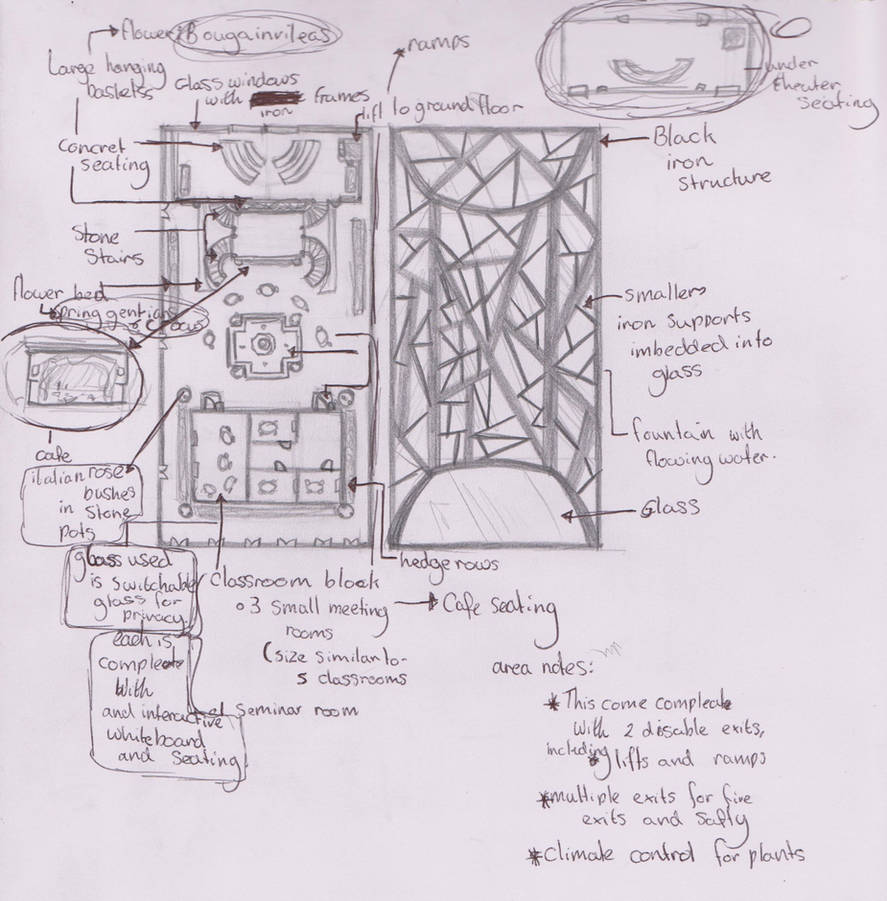 flowers Bougainvileas
Large hanging
baskets
Glass windows
with frames
iron
ramps
lift to ground floor
under
theater
seating
Concret
seating
Stone
Stairs
flower bed
spring gentians
crocus
cafe
italian rose
bushes
in stone
pots
glass used
is switchable
glass for
privacy.
each is
compleate
with
and interactive
whiteboard
and seating
Classroom block
3 small meeting
rooms
(size similar to
5 classrooms
seminar room
hedge rows
Cafe seating
Black
iron
structure
smallers
iron supports
imbedded into
glass
fountain with
flowing water.
Glass
area notes:
* This come compleate
with 2 disable exits,
including
* lifts and ramps
* multiple exits for fire
exits and safty
* Climate control for plants